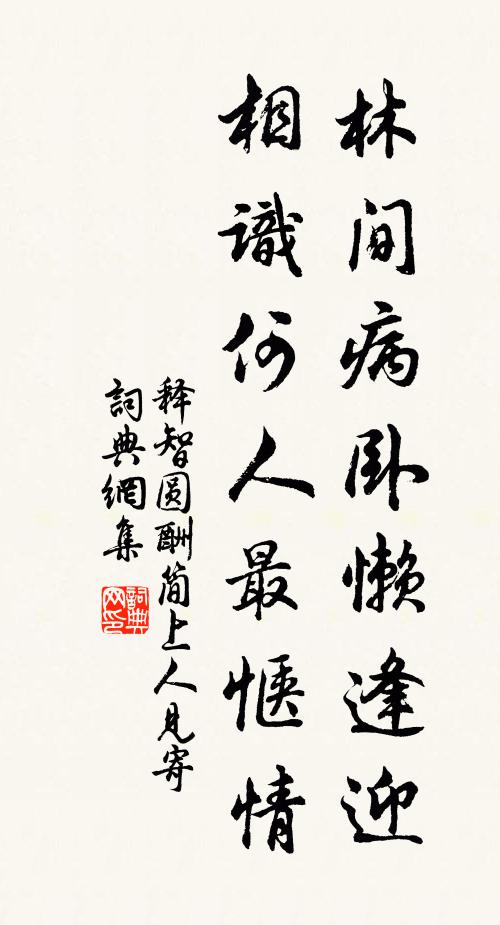 林間病卧懶逢迎
相識何人最愜情
释智圆酬简上人見寄
詞典網集
詞典网印